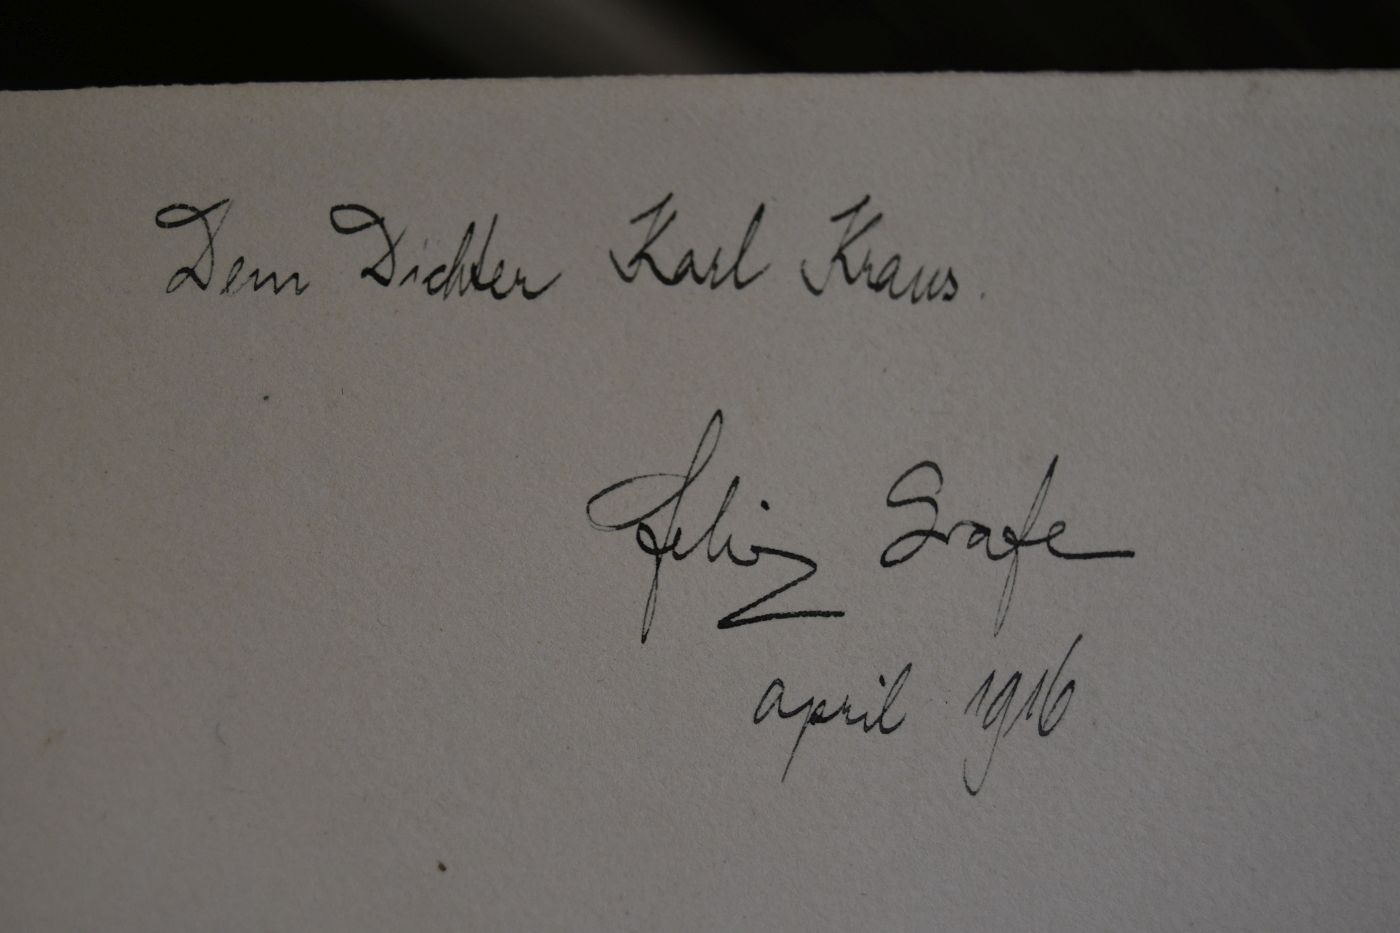 Dem Dichter Karl Kraus.
Felix Grafe
april 1916